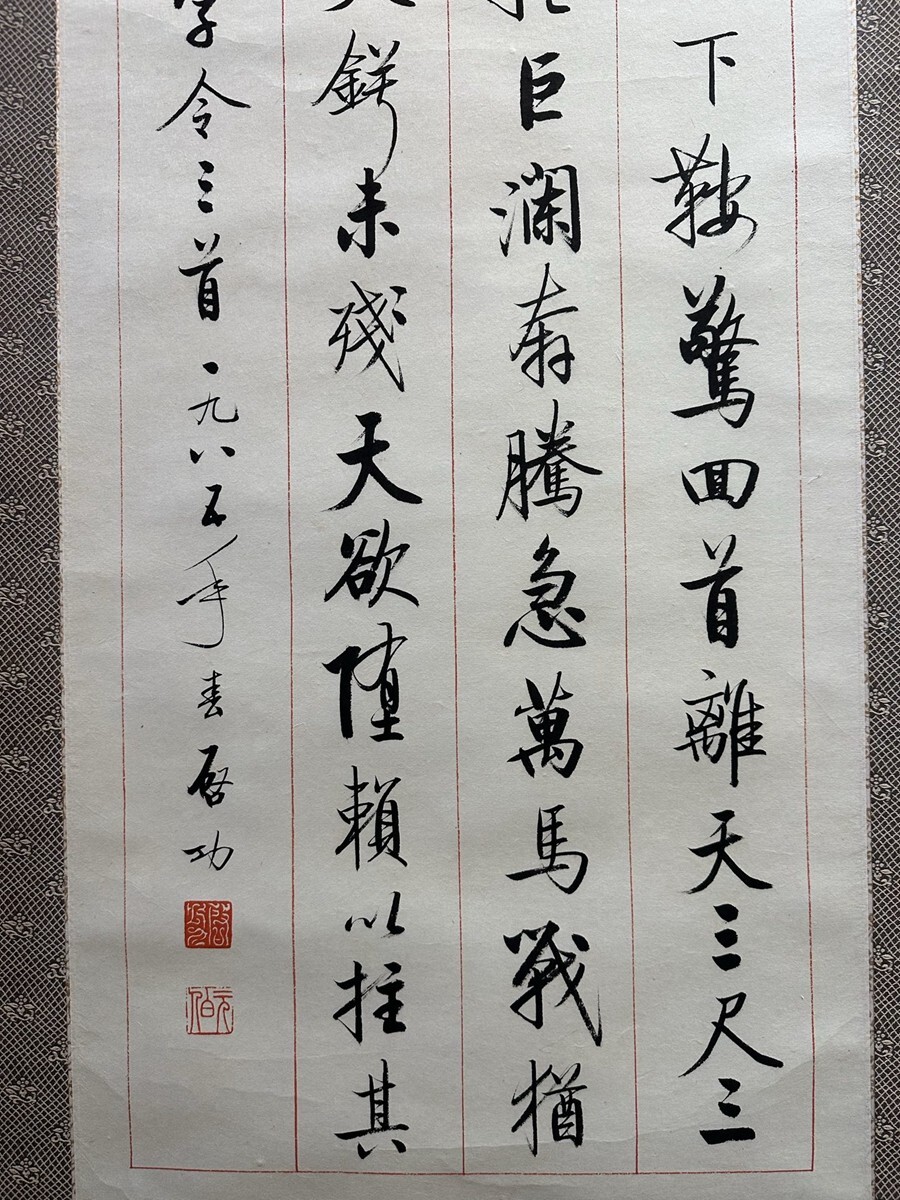 下鞍驚回首離天三尺三
巨瀾奔騰急萬馬戰猶
鍔未殘天欲墮賴以拄其
字令三首一九八五年春啟功
啟功
元白